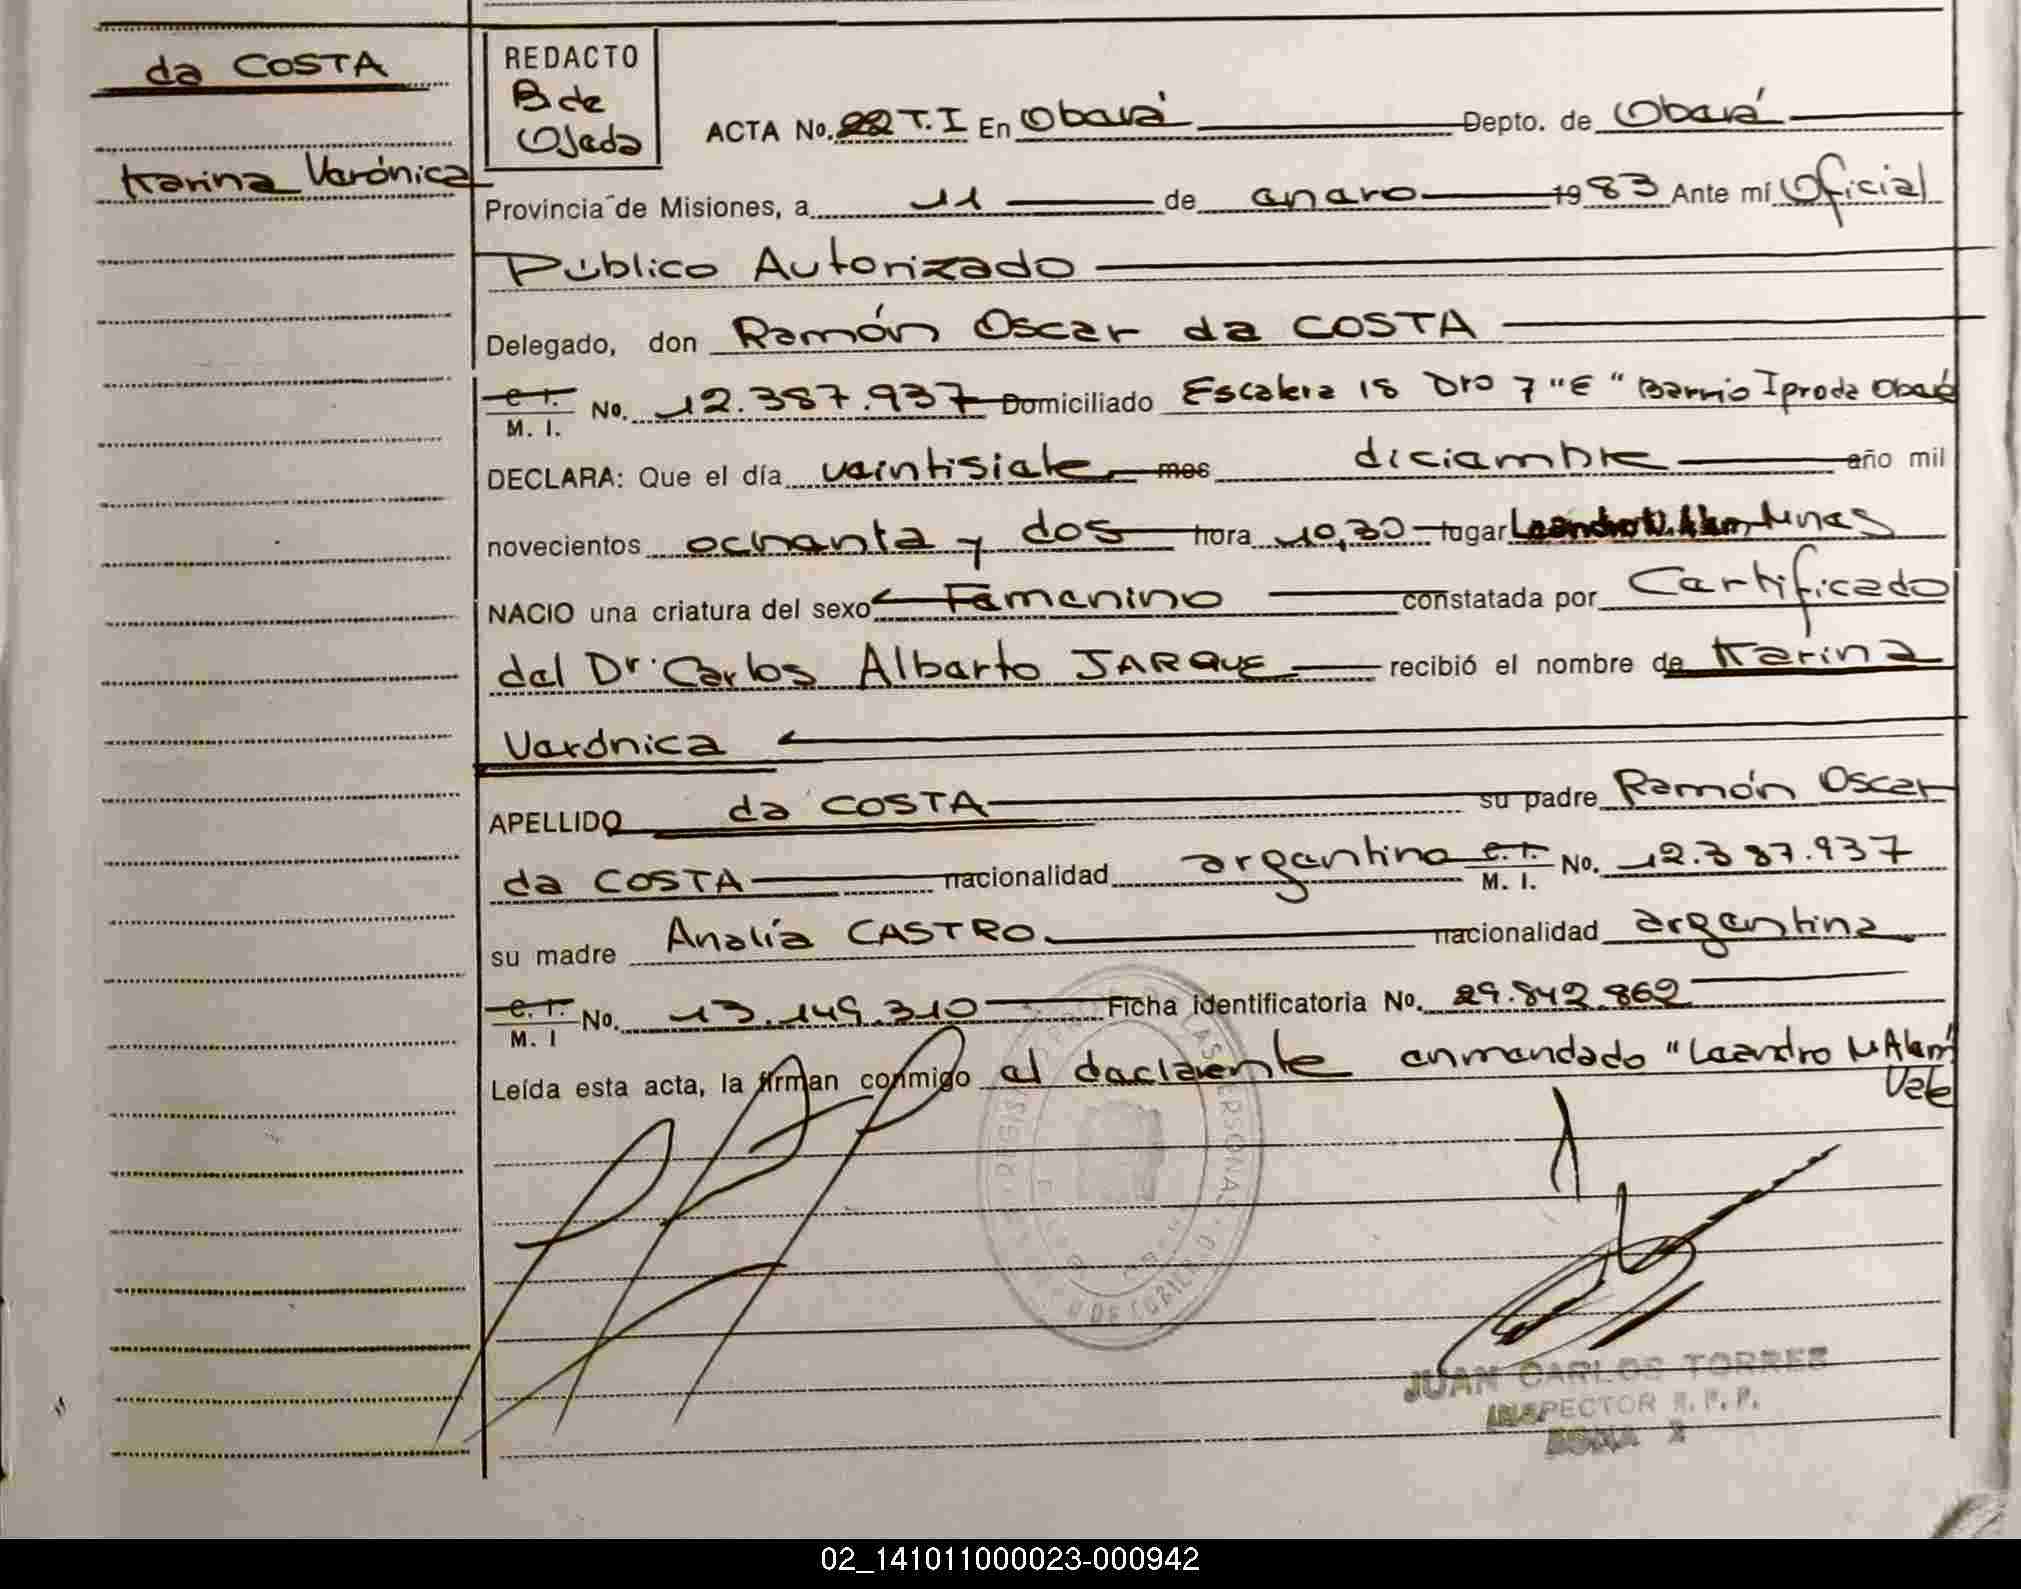 da COSTA
Karina Verónica
REDACTO
B de
Ojeda
ACTA No. 22 T. I En Oberá Depto. de Oberá
Provincia de Misiones, a 11 de enero 1983 Ante mí Oficial
Público Autorizado
Delegado, don Ramón Oscar da COSTA
C. I.
M. I. No. 12.387.937 Domiciliado Escalera 18 Dto 7 "E" Barrio Iprodha Oberá
DECLARA: Que el día veintisiete mes diciembre año mil
novecientos ochenta y dos hora 10,30 lugar Leandro N. Alem, Mnes
NACIO una criatura del sexo Femenino constatada por Certificado
del Dr. Carlos Alberto JARQUE recibió el nombre de Karina
Verónica
APELLIDO da COSTA su padre Ramón Oscar
da COSTA nacionalidad argentino C. I.
M. I. No. 12.387.937
su madre Analía CASTRO nacionalidad argentina
C. I.
M. I No. 13.149.310 Ficha identificatoria No. 29.842.862
Leída esta acta, la firman conmigo el declarante enmendado "Leandro N Alem"
Vale
JUAN CARLOS TORRES
INSPECTOR R. P. P.
ZONA
02_141011000023-000942